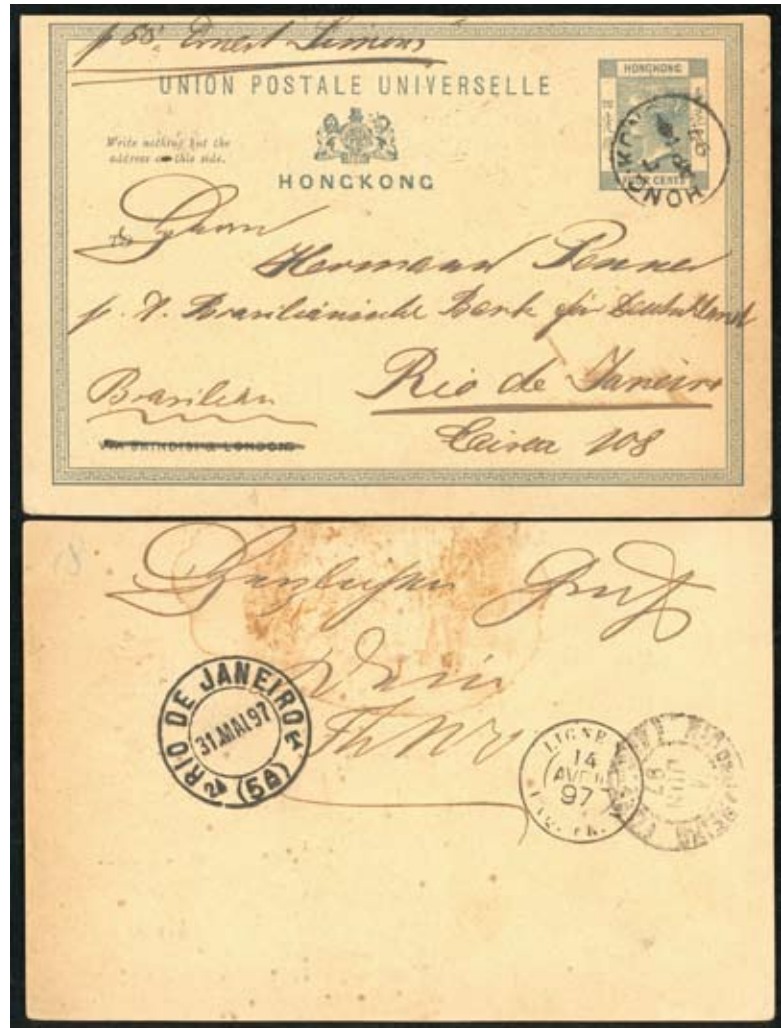 p SS. Ernest Simons
UNION POSTALE UNIVERSELLE
HONGKONG
FOUR CENTS
HONG KONG
Write nothing but the
address on this side.
HONGKONG
To Herrn
Hermann
p. A. Brasilianische Bank für Deutschland
Rio de Janeiro
Brasilien
VIA BRINDISI & LONDON
Caixa 108
8
Herzlichen Gruß
Dein
RIO DE JANEIRO
31.MAI.97
(5A)
LIGNE
14
AVRIL
97
RIO DE JANEIRO
1
JUN
97